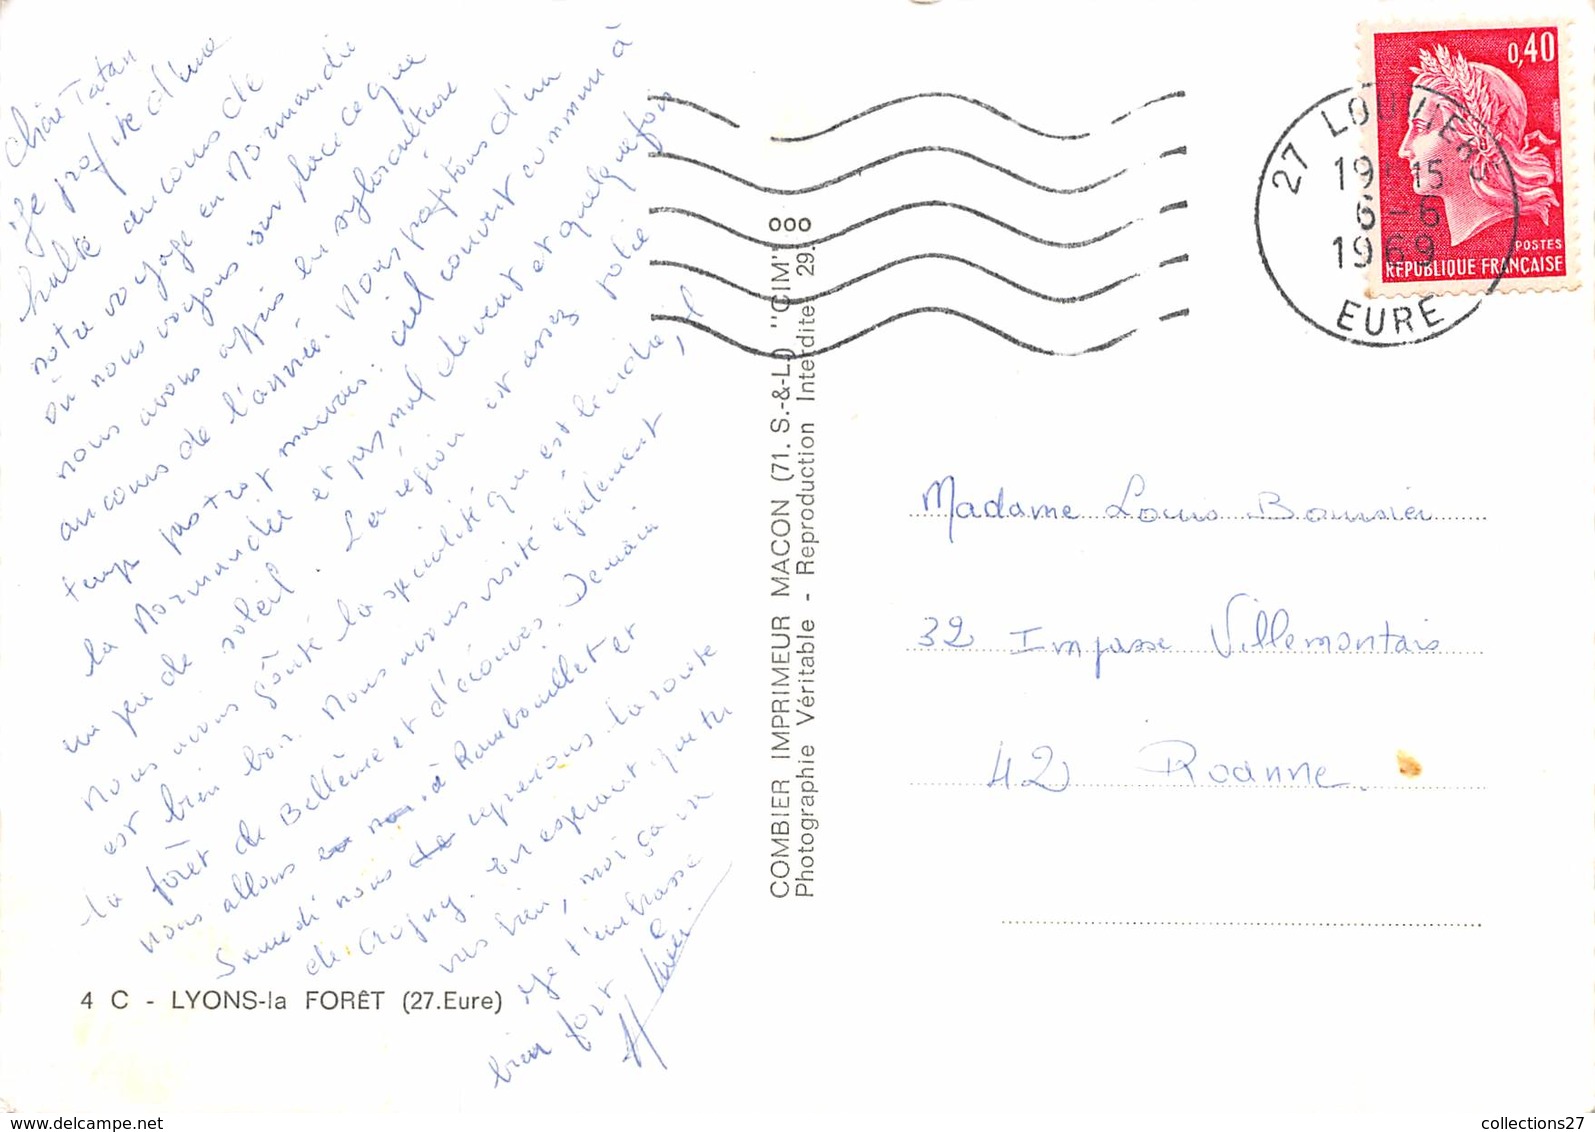 Chère Tatan
Je profite d'une
halte au cours de
notre voyage en Normandie
où nous voyons sur place ce que
nous avons appris en sylviculture
au cours de l'année. Nous profitons d'un
temps pas trop mauvais : ciel couvert commun à
la Normandie et pas mal de vent et quelquefois
un peu de soleil. La région est assez jolie
Nous avons goûté la spécialité qui est le cidre, il
est bien bon. Nous avons visité également
la forêt de Bellême et d'écouves. Demain
nous allons à Rambouillet et
Samedi nous reprenons la route
de Crogny. En espérant que tu
vas bien, moi ça va
Je t'embrasse
bien fort
4 C - LYONS-la FORÊT (27.Eure)
COMBIER IMPRIMEUR MACON (71. S.-&-L.) "CIM"
Photographie Véritable - Reproduction Interdite 29.
000
0,40
POSTES
RÉPUBLIQUE FRANÇAISE
27 LOUVIERS
19 15
6-6
1969
EURE
Madame Louis
32 Impasse Villemontais
42 Roanne.
collections27